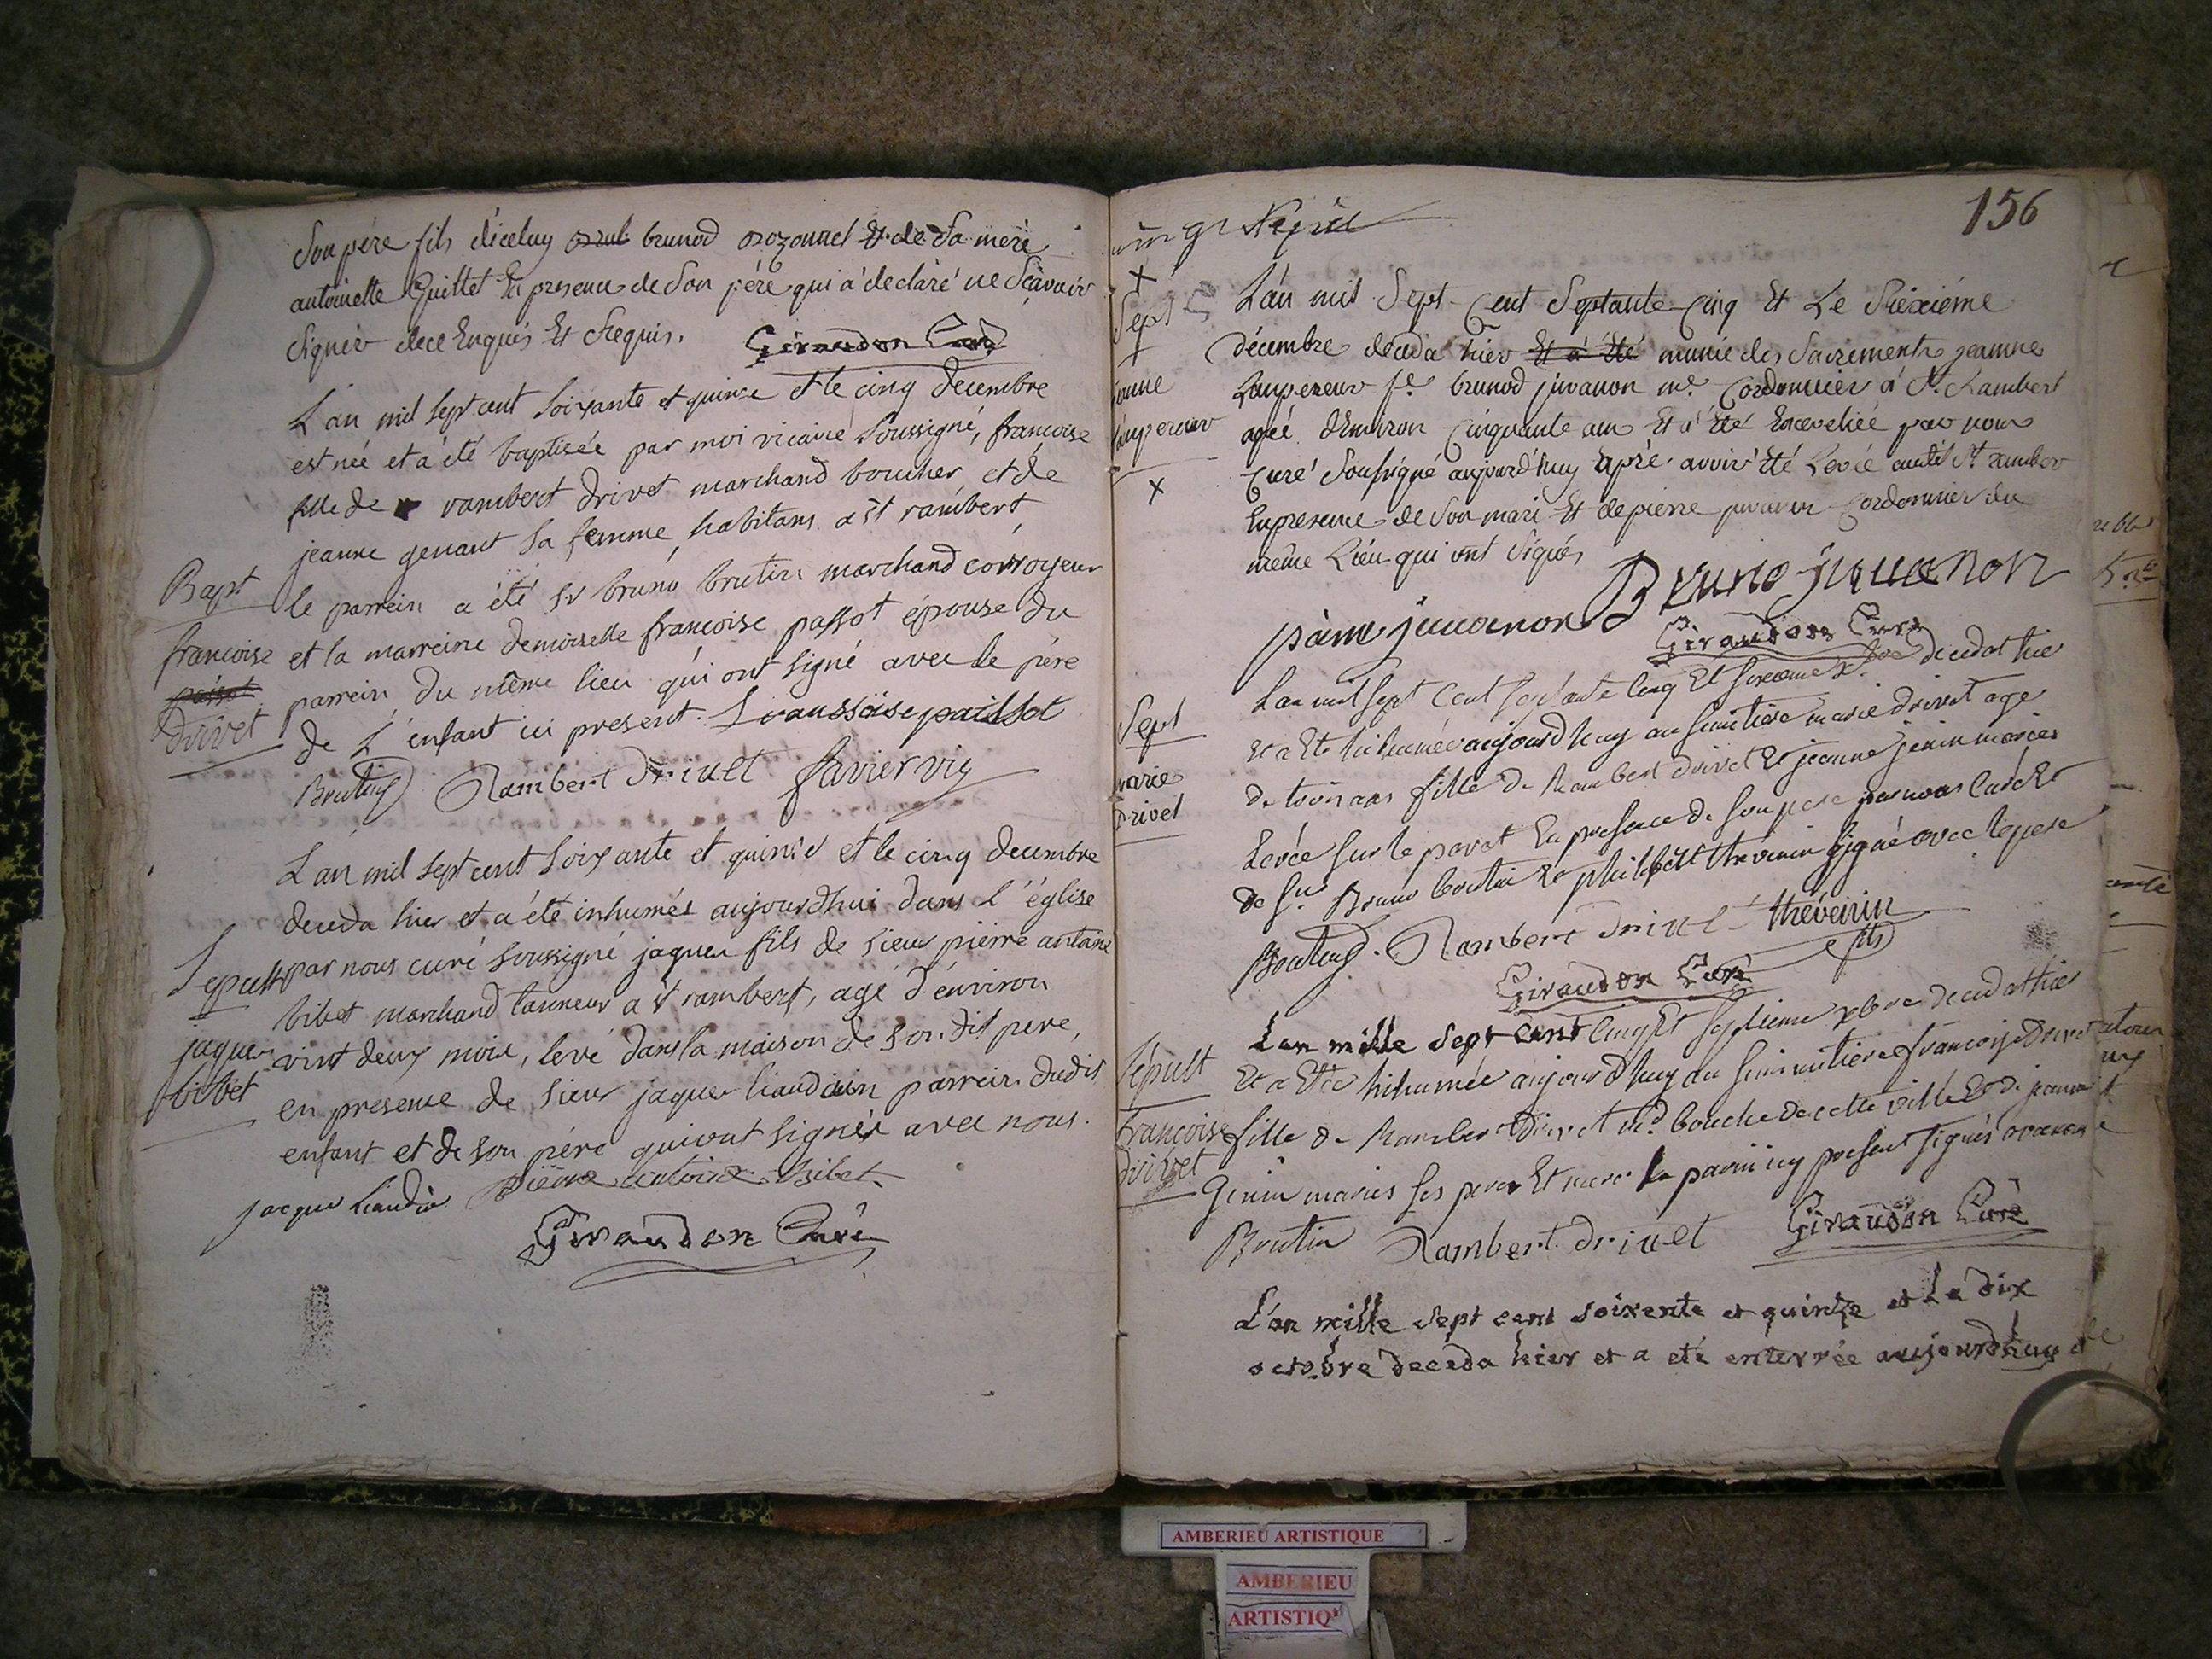 Son père fils diceluy brunod orozonnel Et de Sa mere
antoinette Guillet En presence de Son père qui a declaré ne Scavoir
Signer dece Enquis Et Requis. Giraudon Curé
L'an mil sept cent soixante et quinze et le cinq decembre
est née et a été baptisée par moi vicaire soussigné, francoise
fille de rambert drivet marchand boucher, et de
jeanne genant sa femme, habitans a st rambert
Bapt
francoise
drivet
le parrein a été sr bruno broutin marchand corroyeur
et la marreine demoiselle francoise passot épouse du
parrein du même lieu qui ont signé avec le père
de L'enfant ici present. francsoise paissot
Broutin Rambert drivet favier vic
L'an mil sept cent soixante et quinze et le cinq decembre
deceda hier et a été inhumés aujourdhui dans l'église
Sepult
jaques
bibet
par nous curé soussigné jaques fils de sieur pierre antoine
bibet marchand tanneur a st rambert, agé d'environ
vint deux mois, levé dans la maison de son dit pere,
en presence de sieur jaques liaudin parrein dudit
enfant et de son père qui ont signés avec nous.
jacque liaudin pierre antoine bibet
Giraudon Curé
156
Sept
Lampereur
L'an mil Sept Cent Septante Cinq Et Le Sixiéme
décembre deceda hier Et a été munie des Sacrements jeanne
Lampereur fe brunod juvanon me Cordonnier a St Rambert
agée d'Environ Cinquante ans Et a été Encevelie par nous
Curé Soussigné aujourd'huy après avoir été Levée
Enpresence de Son mari Et de pierre juvanon Cordonnier du
même Lieu qui ont Signés Bruno juvanon
juvanon Giraudon Curé
Sept
marie
drivet
L'an mil sept Cent septante Cinq Et sixieme xbre deceda hier
et a Ete inhumée aujourdhuy au simitiere marie drivet age
de trois ans fille de Rambert drivet Et jeanne jenin mariés
Levée sur le pavet En presence de son pere par nous Curé Et
de Sr Bruno broutin Et philibert thevenin signé avec le pere
Broutin. Rambert drivet thévenin fils
Giraudon Curé
Sépult
francoise
drivet
L'an mille sept cent Cinq Et septieme xbre deceda hier
Et a Ete inhumée aujourdhuy au simitiere francoise drivet
fille de Rambert drivet md bouche de cette ville Et de jeanne
Genin mariés ses pere Et mere Le parin icy present signés
Broutin Rambert drivet Giraudon Curé
L'an mille sept cent soixente et quinze et le dix
octobre deceda hier et a eté enterrée aujourdhuy
AMBERIEU ARTISTIQUE
AMBERIEU
ARTISTIQ